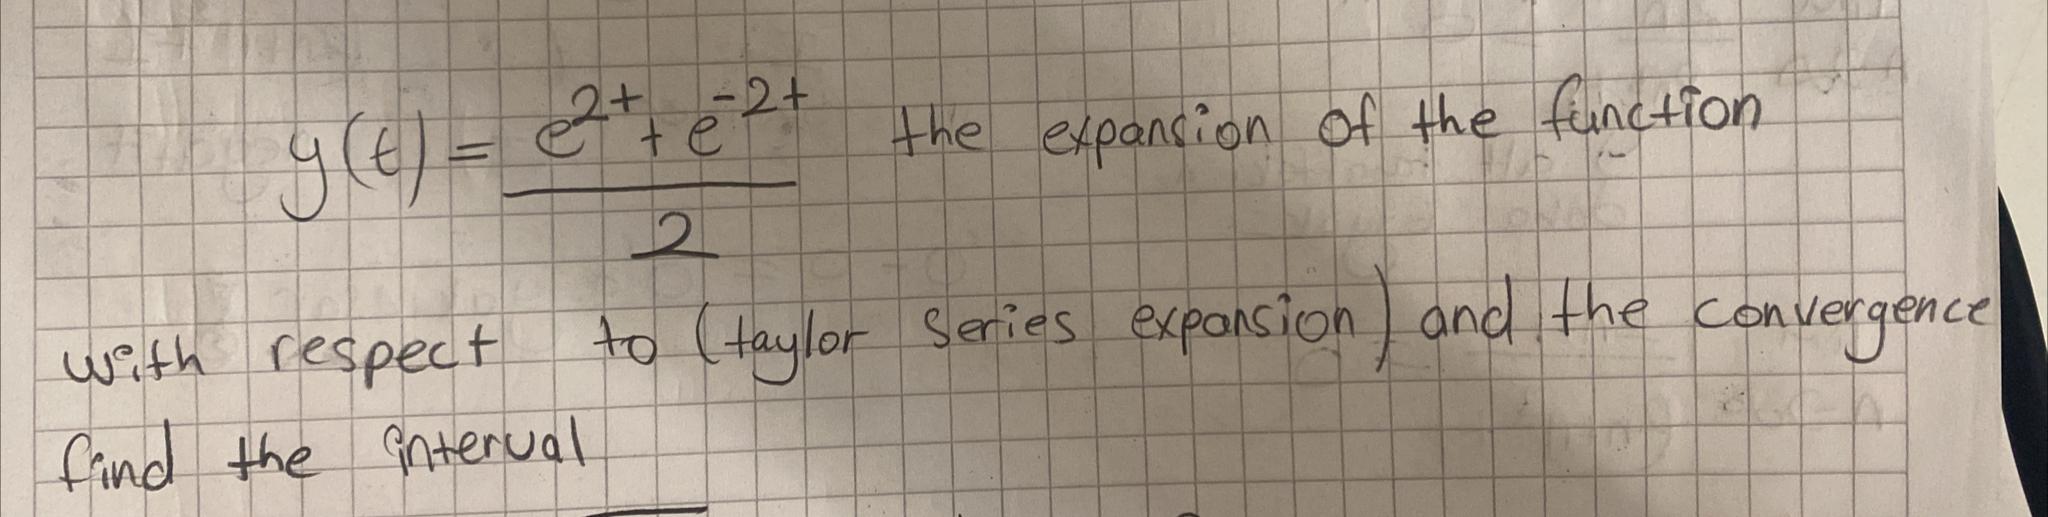 y(t) = (e^{2t} + e^{-2t}) / 2 the expansion of the function
with respect to (taylor series expansion) and the convergence
find the interval